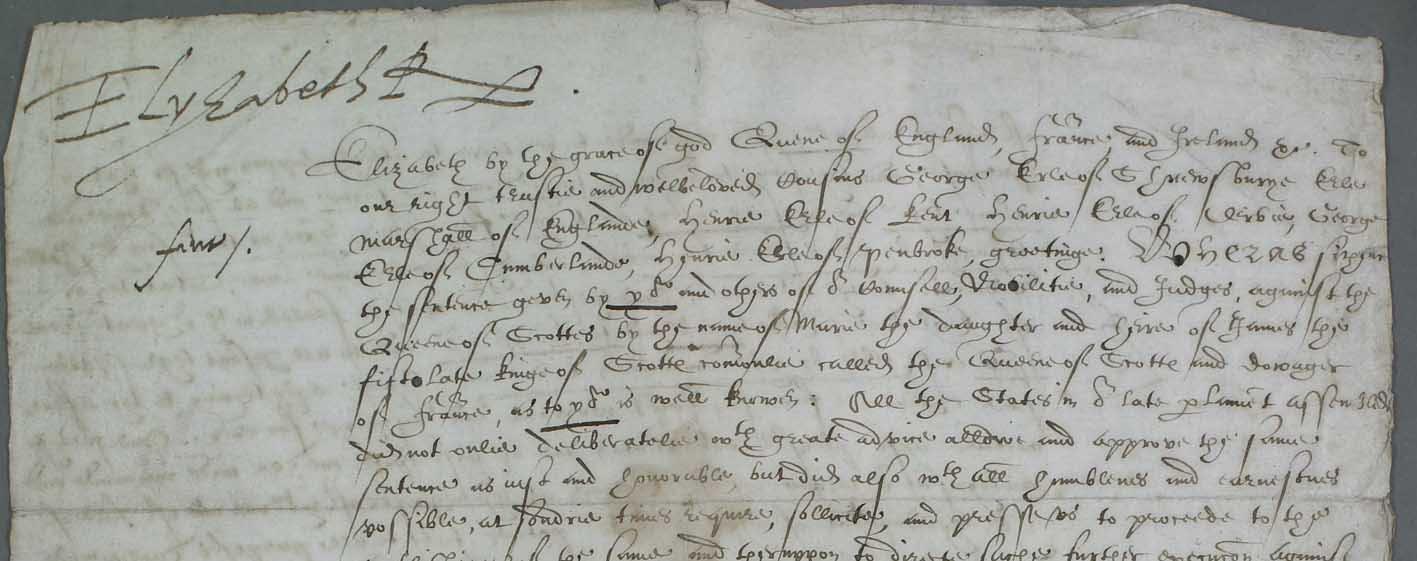 Elyzabeth R
Elizabeth by the grace of god Quene of England, France and Ireland &c. To
our right trustie and welbeloved Cousins George Erle of Shrewsburye Erle
Marshall of Englande, Henrie Erle of Kent Henrie Erle of Derbie, George
Erle of Cumberlande, Henrie Erle of Penbroke, greetinge. Wheras sithens
the sentence geven by yow and others of or Counsell, Nobilitie, and Judges, against the
Queene of Scottes by the name of Marie the daughter and heire of James the
fift late kinge of Scotts comonlie called the Queene of Scotts and dowager
of France, as to yow is well knowen: All the States in or late parlamet assembled
did not onlie deliberatelie wth greate advice allowe and approve the same
sentence as iust and honorable, but did also wth all humblenes and earnestnes
possible, at sondrie times require, sollicite, and presse vs to proceede to the
of the same and therevppon to directe suche further execucon against